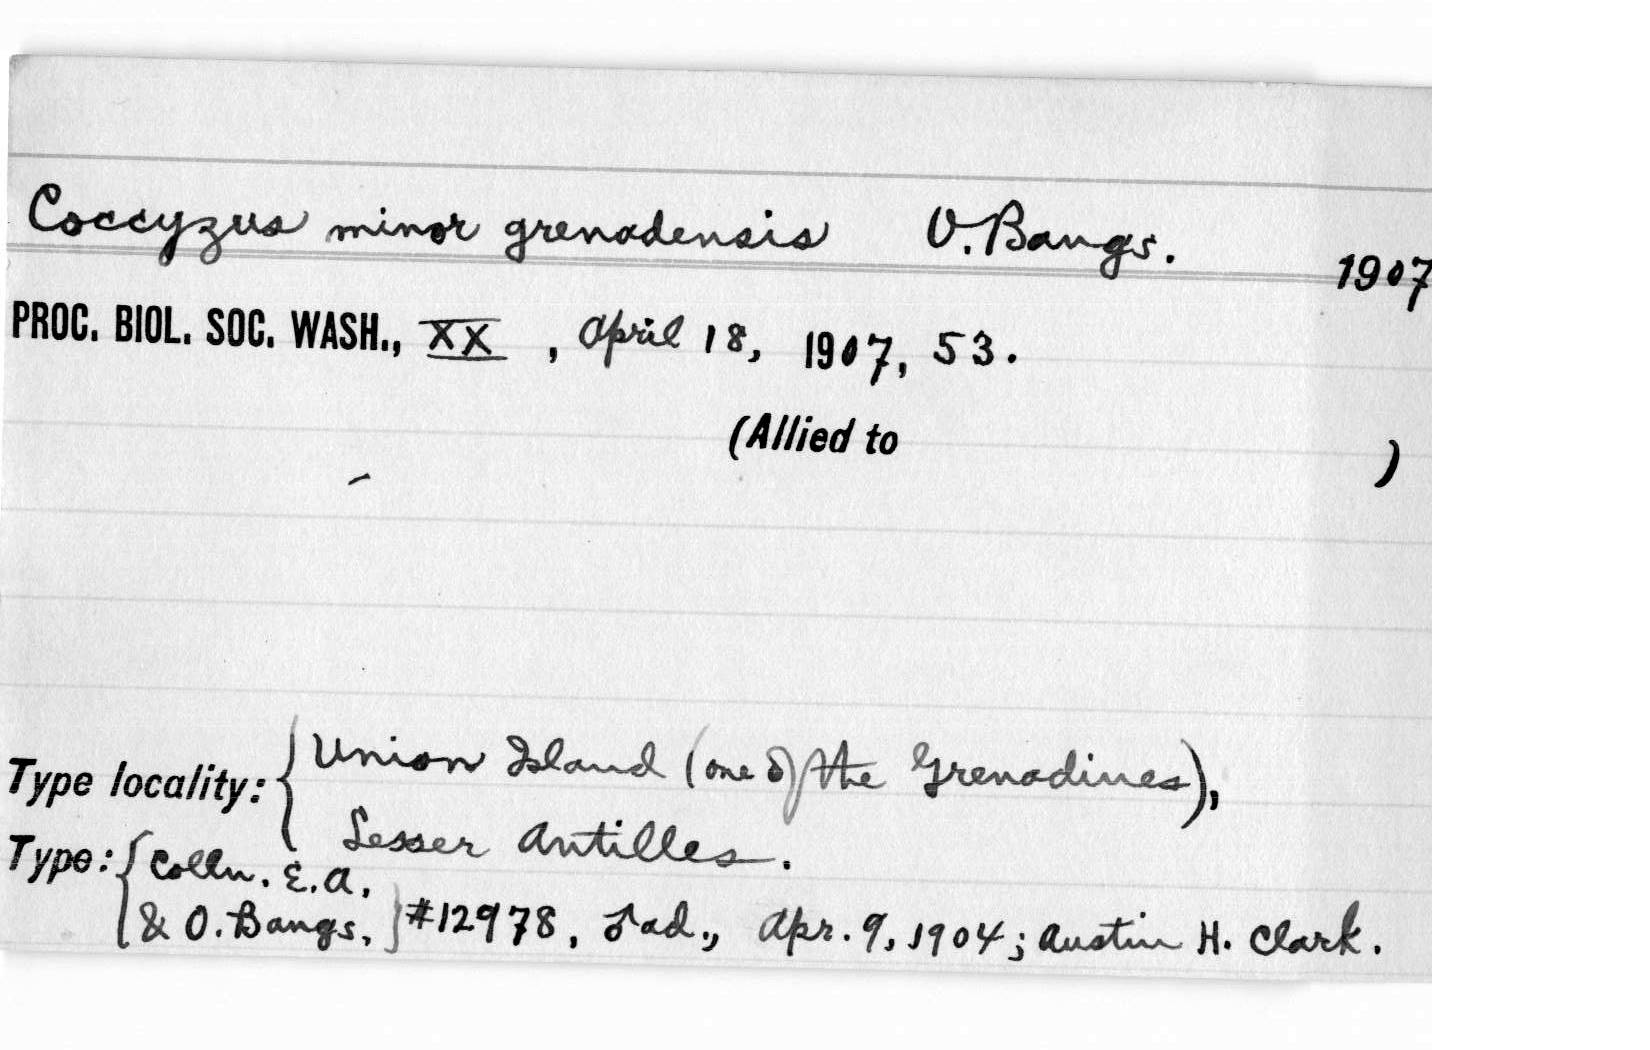 Coccyzus minor grenadensis O. Bangs. 1907
PROC. BIOL. SOC. WASH., XX, April 18, 1907, 53.
(Allied to )
Type locality: { Union Island (one of the Grenadines),
Lesser Antilles.
Type: { Colln. E.A.
& O. Bangs, } #12978, ♂ ad., Apr. 9, 1904; Austin H. Clark.